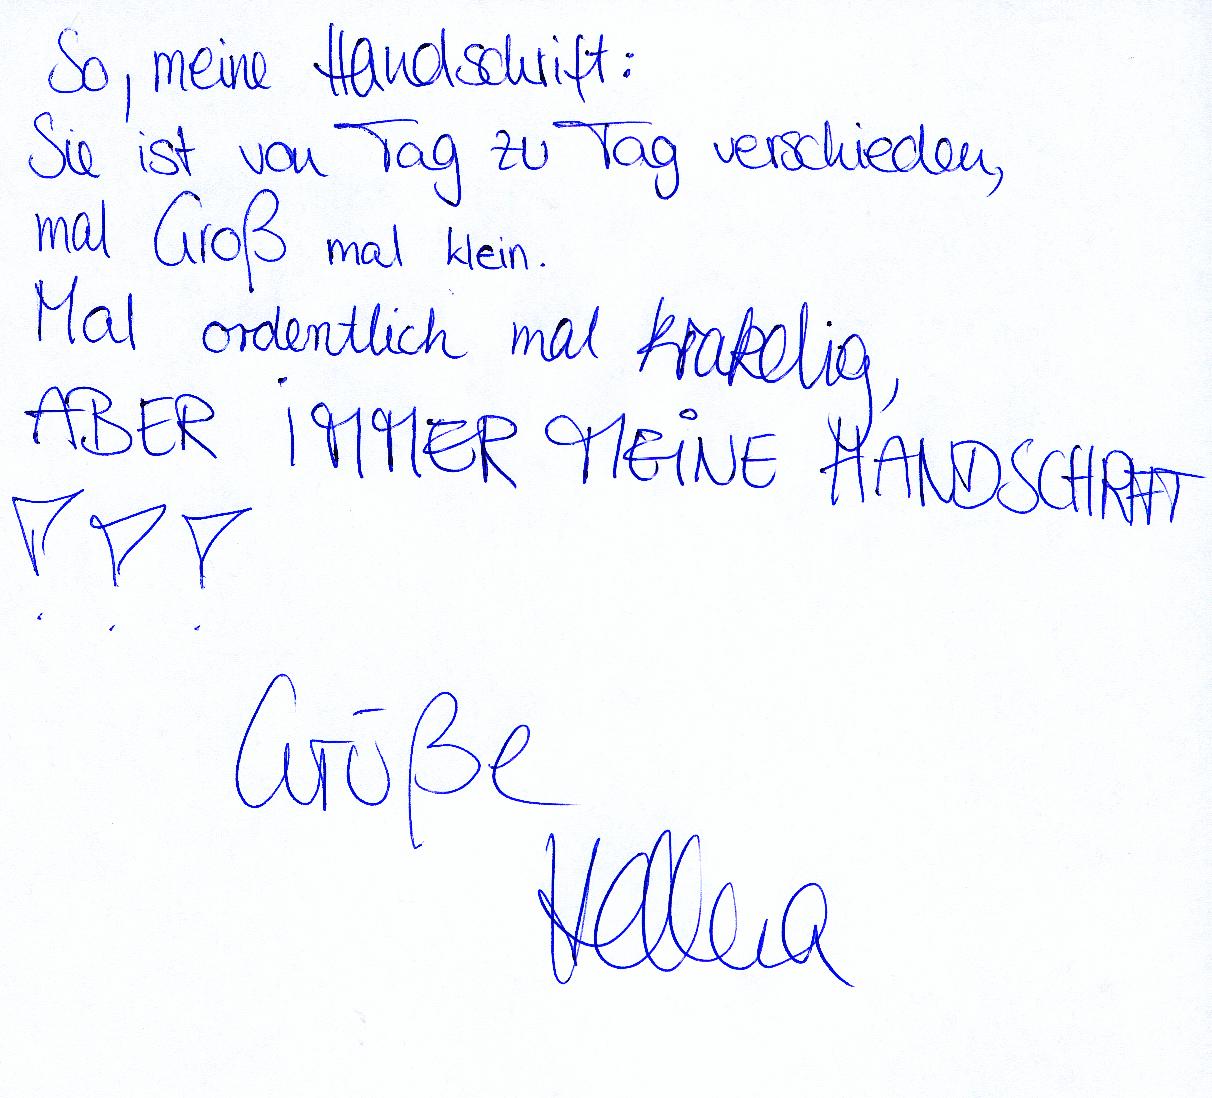 So, meine Handschrift:
Sie ist von Tag zu Tag verschieden,
mal Groß mal klein.
Mal ordentlich mal krakelig,
ABER iMMER MEiNE HANDSCHRIFT
!!!
Grüße